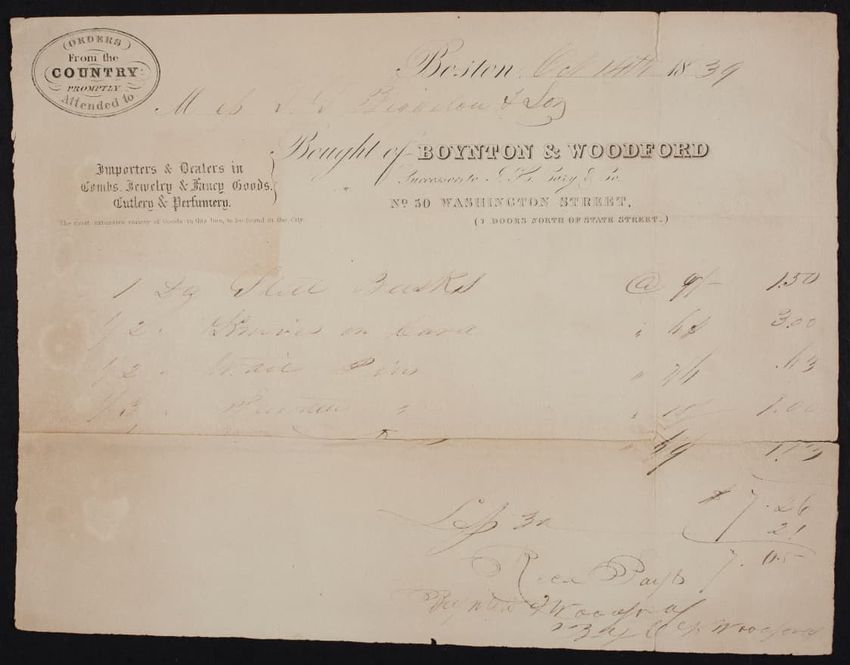 (ORDERS)
From the
COUNTRY
PROMPTLY
Attended to
Boston, Oct 14th 1839
Mess Bigelow & Son
Bought of BOYNTON & WOODFORD
Importers & Dealers in
Combs, Jewelry & Fancy Goods,
Cutlery & Perfumery.
The most extensive variety of Goods in this line, to be found in the City
Successors to & Co.
No 50 WASHINGTON STREET,
(7 DOORS NORTH OF STATE STREET.)
1 Dz Steel Busks @ 9/- 1.50
1/2 " Knives on Card " 3.00
1/2 " Hair Pins " .63
1/3 " " 1.00
1.13
$7.26
Less 3% 21
7.05
Recd Payt
Boynton & Woodford
By Woodford